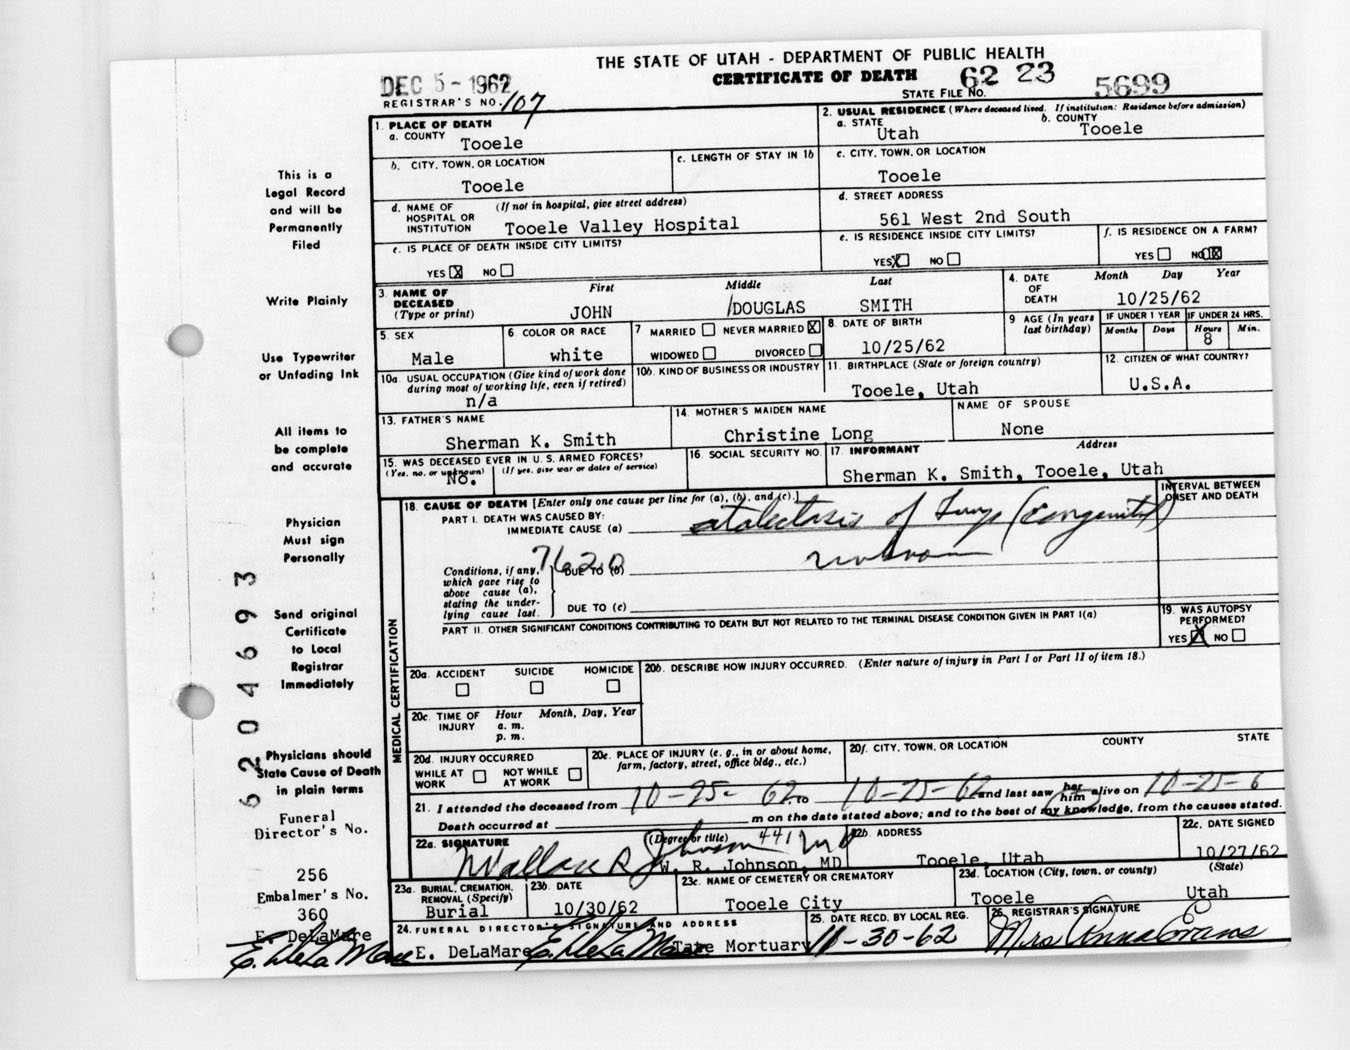 THE STATE OF UTAH - DEPARTMENT OF PUBLIC HEALTH
DEC 5 - 1962
CERTIFICATE OF DEATH 62 23 5699
REGISTRAR'S NO. 107
STATE FILE NO.
1. PLACE OF DEATH
a. COUNTY
Tooele
2. USUAL RESIDENCE (Where deceased lived. If institution: Residence before admission)
a. STATE b. COUNTY
Utah Tooele
b. CITY, TOWN, OR LOCATION
Tooele
c. LENGTH OF STAY IN 1b
c. CITY, TOWN, OR LOCATION
Tooele
d. NAME OF HOSPITAL OR INSTITUTION (If not in hospital, give street address)
Tooele Valley Hospital
d. STREET ADDRESS
561 West 2nd South
e. IS PLACE OF DEATH INSIDE CITY LIMITS?
YES X NO
e. IS RESIDENCE INSIDE CITY LIMITS?
YES X NO
f. IS RESIDENCE ON A FARM?
YES NO X
3. NAME OF DECEASED (Type or print)
First Middle Last
JOHN /DOUGLAS SMITH
4. DATE OF DEATH Month Day Year
10/25/62
5. SEX
Male
6 COLOR OR RACE
white
7 MARRIED NEVER MARRIED X
WIDOWED DIVORCED
8. DATE OF BIRTH
10/25/62
9 AGE (In years last birthday)
IF UNDER 1 YEAR IF UNDER 24 HRS.
Months Days Hours Min.
8
10a. USUAL OCCUPATION (Give kind of work done during most of working life, even if retired)
n/a
10b. KIND OF BUSINESS OR INDUSTRY
11. BIRTHPLACE (State or foreign country)
Tooele, Utah
12. CITIZEN OF WHAT COUNTRY?
U.S.A.
13. FATHER'S NAME
Sherman K. Smith
14. MOTHER'S MAIDEN NAME
Christine Long
NAME OF SPOUSE
None
15. WAS DECEASED EVER IN U. S. ARMED FORCES?
(Yes, no, or unknown) (If yes, give war or dates of service)
No.
16. SOCIAL SECURITY NO.
17. INFORMANT Address
Sherman K. Smith, Tooele, Utah
MEDICAL CERTIFICATION
18. CAUSE OF DEATH [Enter only one cause per line for (a), (b), and (c).]
INTERVAL BETWEEN ONSET AND DEATH
PART I. DEATH WAS CAUSED BY:
IMMEDIATE CAUSE (a) atalectasis of lungs (congenital)
unknown
7620
Conditions, if any, which gave rise to above cause (a), stating the under-lying cause last.
DUE TO (b)
DUE TO (c)
PART II. OTHER SIGNIFICANT CONDITIONS CONTRIBUTING TO DEATH BUT NOT RELATED TO THE TERMINAL DISEASE CONDITION GIVEN IN PART I(a)
19. WAS AUTOPSY PERFORMED?
YES X NO
20a. ACCIDENT SUICIDE HOMICIDE
20b. DESCRIBE HOW INJURY OCCURRED. (Enter nature of injury in Part I or Part II of item 18.)
20c. TIME OF INJURY Hour Month, Day, Year
a. m.
p. m.
20d. INJURY OCCURRED
WHILE AT WORK NOT WHILE AT WORK
20e. PLACE OF INJURY (e. g., in or about home, farm, factory, street, office bldg., etc.)
20f. CITY, TOWN, OR LOCATION COUNTY STATE
21. I attended the deceased from 10-25-62 to 10-25-62 and last saw her him alive on 10-25-6
Death occurred at m on the date stated above; and to the best of my knowledge, from the causes stated.
22a. SIGNATURE (Degree or title)
Wallace R Johnson 441 MD
W. R. Johnson, MD
22b. ADDRESS
Tooele, Utah
22c. DATE SIGNED
10/27/62
23a. BURIAL, CREMATION, REMOVAL (Specify)
Burial
23b. DATE
10/30/62
23c. NAME OF CEMETERY OR CREMATORY
Tooele City
23d. LOCATION (City, town, or county) (State)
Tooele Utah
24. FUNERAL DIRECTOR'S SIGNATURE AND ADDRESS
E. DeLaMare E. DeLaMare Tate Mortuary
25. DATE RECD. BY LOCAL REG.
11-30-62
26. REGISTRAR'S SIGNATURE
Mrs Anna Evans
This is a
Legal Record
and will be
Permanently
Filed
Write Plainly
Use Typewriter
or Unfading Ink
All items to
be complete
and accurate
Physician
Must sign
Personally
Send original
Certificate
to Local
Registrar
Immediately
Physicians should
State Cause of Death
in plain terms
Funeral
Director's No.
256
Embalmer's No.
360
E. DeLaMare
E. DeLaMare
62 04693